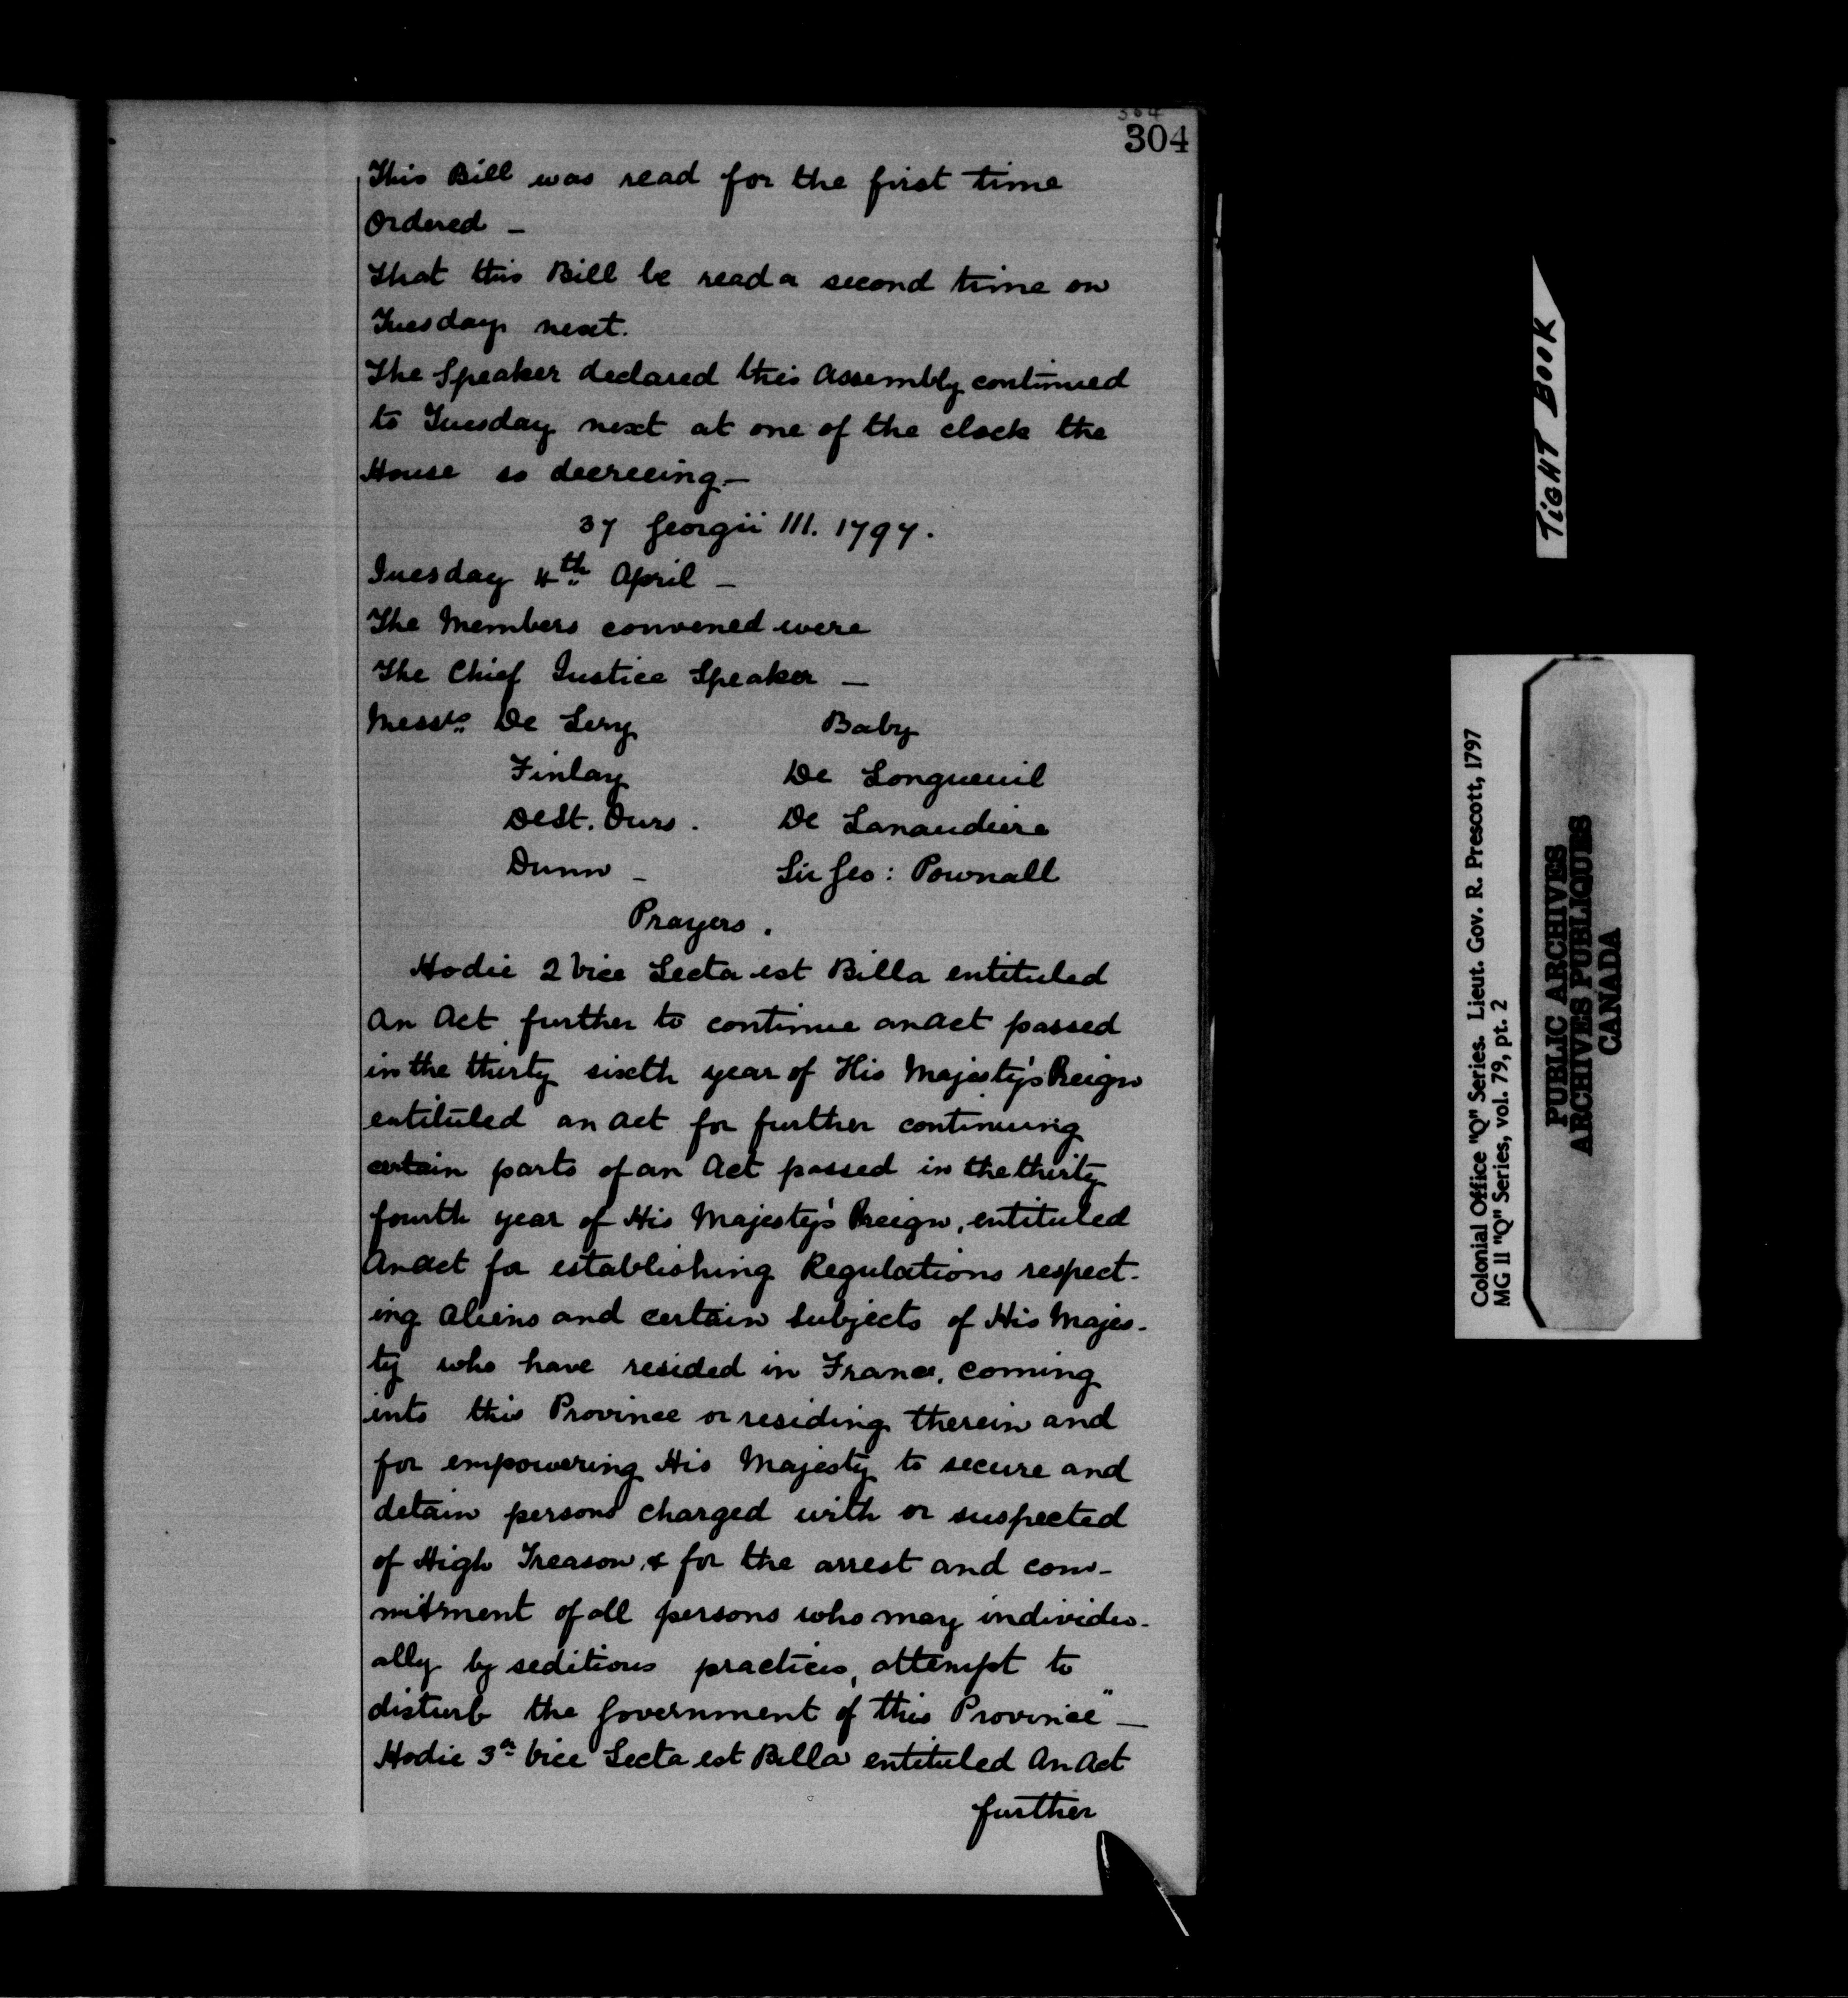 304
304
This Bill was read for the first time
Ordered —
That this Bill be read a second time on
Tuesday next.
The Speaker declared this Assembly continued
to Tuesday next at one of the clock the
House so decreeing —
37 Georgii III. 1797.
Tuesday 4th April —
The Members convened were
The Chief Justice Speaker —
Messrs. De Lery Baby
Finlay De Longueuil
De St. Ours. De Lanaudiere
Dunn — Sir Geo: Pownall
Prayers.
Hodie 2 Vice Lecta est Billa entituled
An Act further to continue an Act passed
in the thirty sixth year of His Majesty's Reign
entituled an act for further continuing
certain parts of an Act passed in the thirty
fourth year of His Majesty's Reign, entituled
An Act for establishing Regulations respect-
ing Aliens and certain Subjects of His Majes-
ty who have resided in France, coming
into this Province or residing therein and
for empowering His Majesty to secure and
detain persons charged with or suspected
of High Treason & for the arrest and com-
mitment of all persons who may individu-
ally by seditious practices, attempt to
disturb the Government of this Province" —
Hodie 3a Vice Lecta est Billa entituled An Act
further
TIGHT BOOK
Colonial Office "Q" Series. Lieut. Gov. R. Prescott, 1797
MG 11 "Q" Series, vol. 79, pt. 2
PUBLIC ARCHIVES
ARCHIVES PUBLIQUES
CANADA